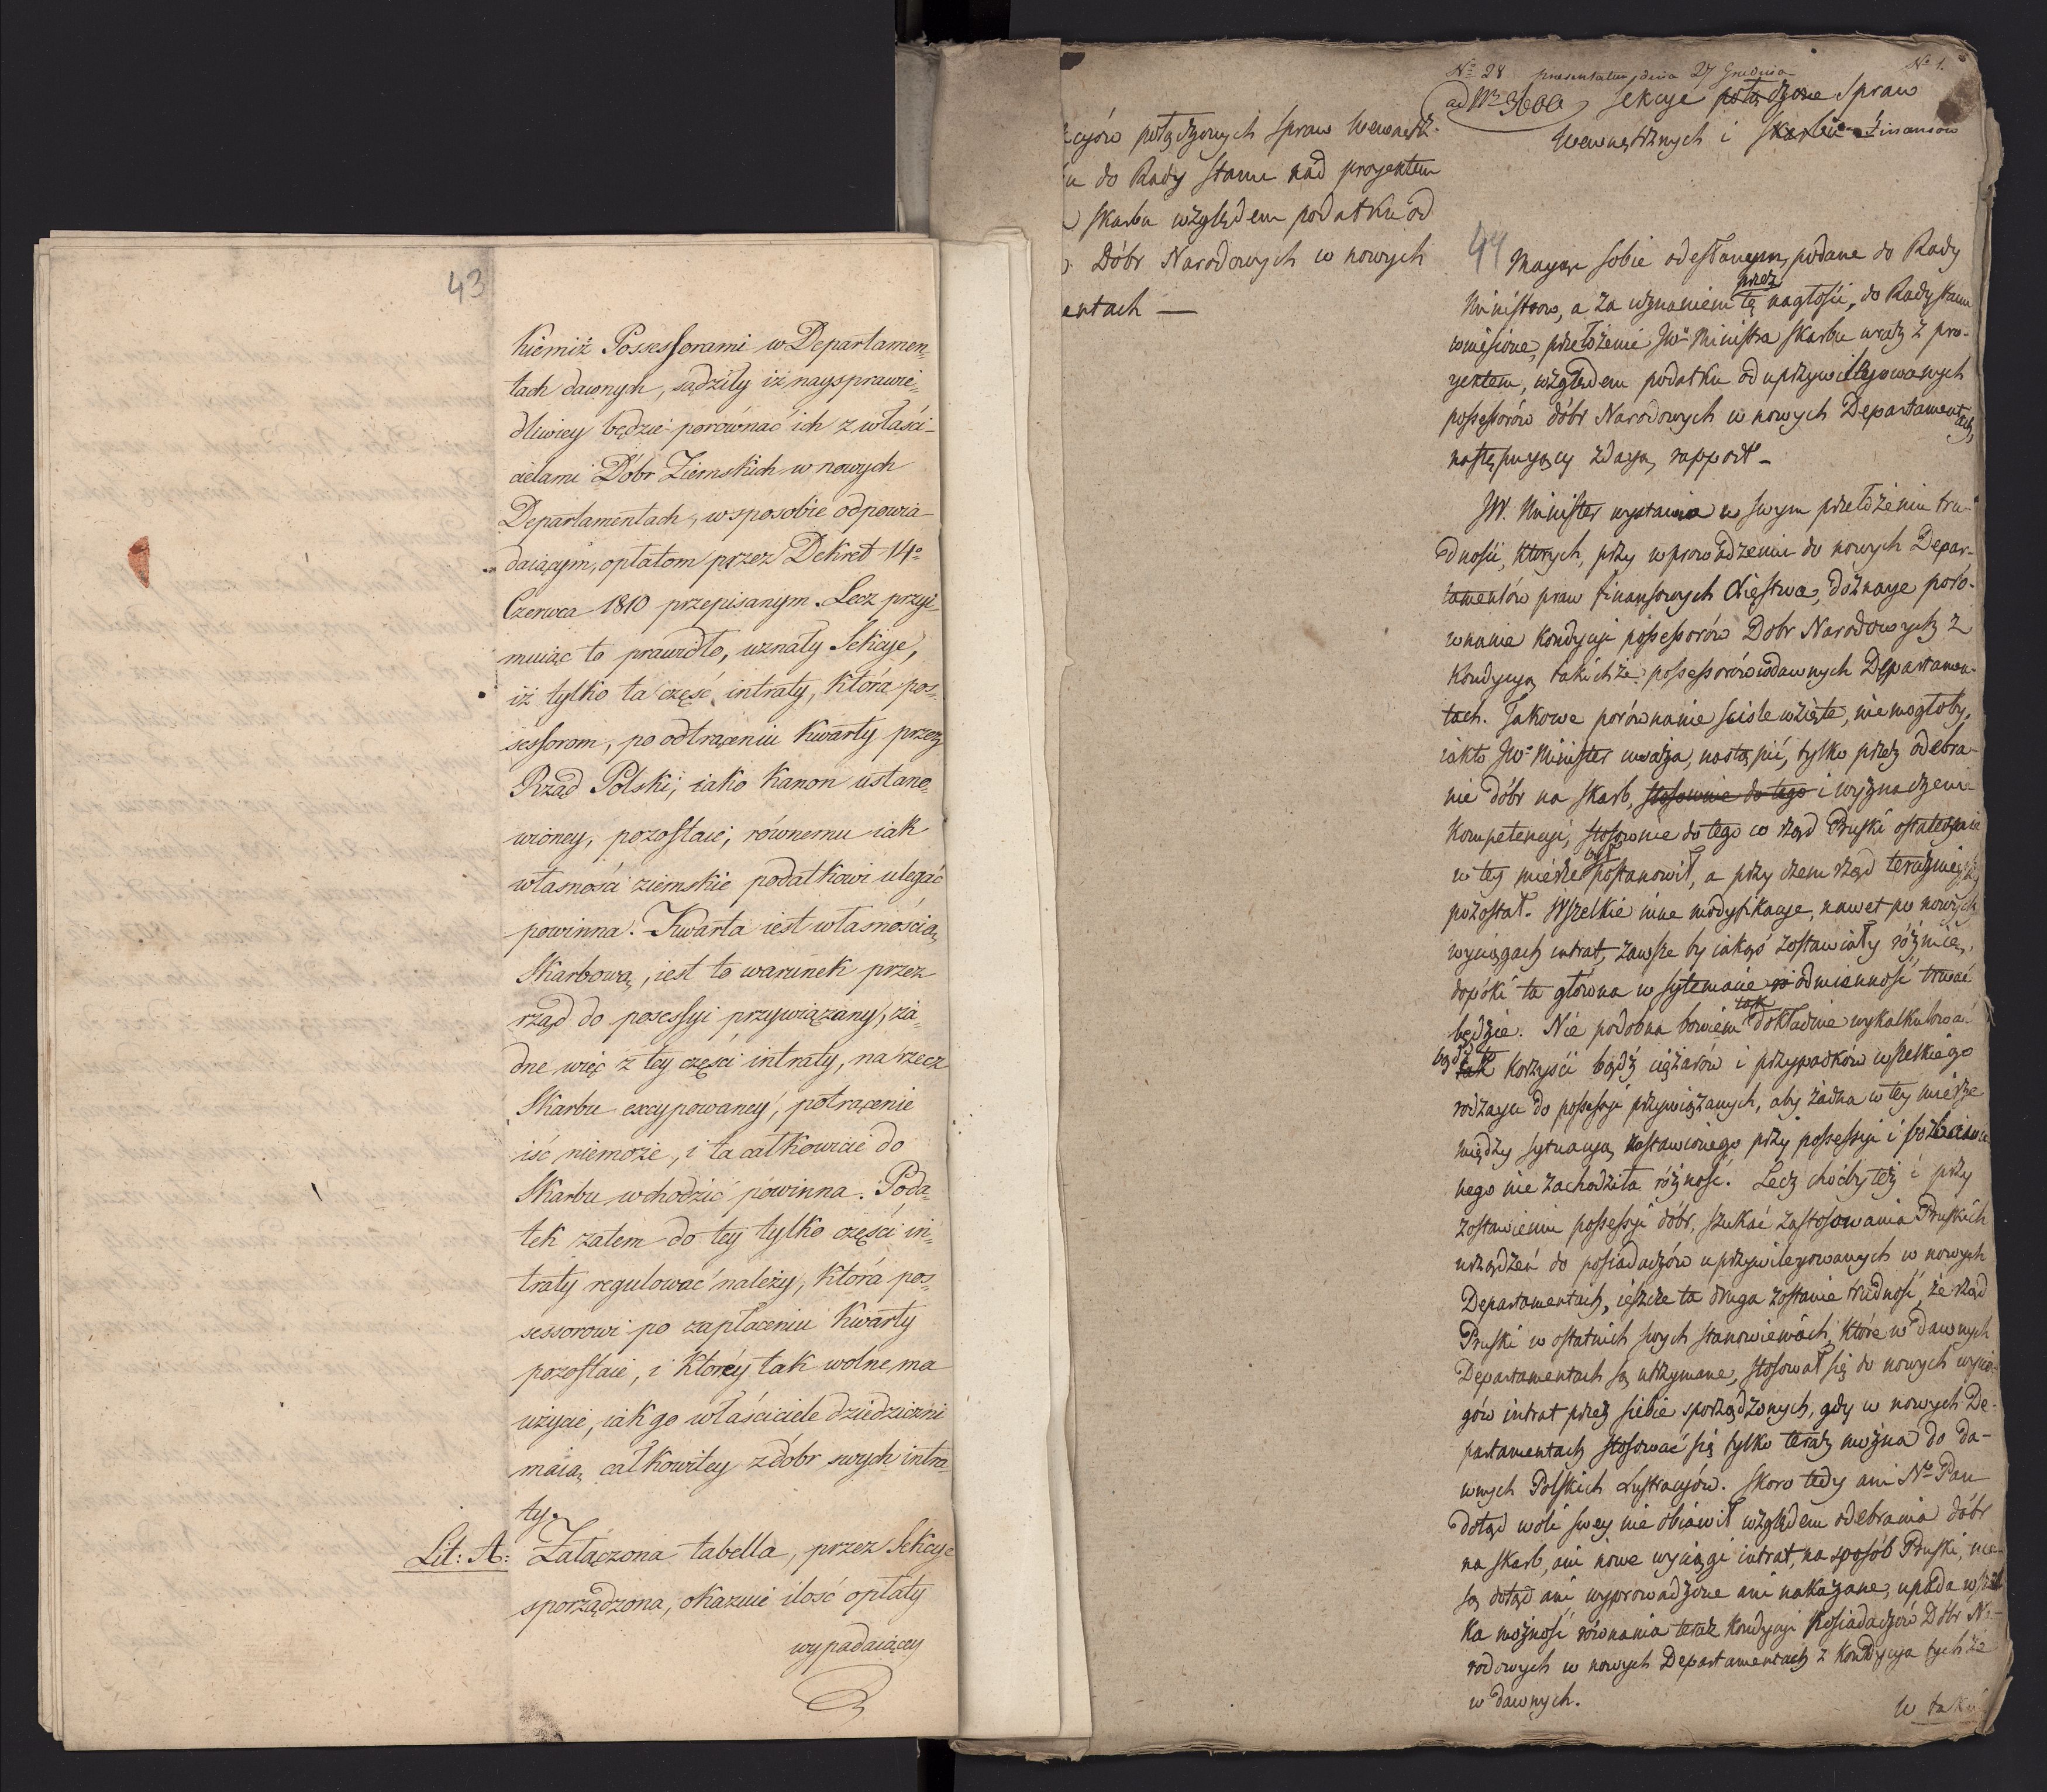 43
kiemiż Possessorami w Departamen-
tach dawnych, sądziły iż naysprawie-
dliwiey będzie porównać ich z właści-
cielami Dóbr Ziemskich w nowych
Departamentach, w sposobie odpowia-
daiącym, opłatom przez Dekret 14º
Czerwca 1810 przepisanym. Lecz przyi-
muiąc to prawidło, uznały Sekcye,
iż tylko ta część intraty, która pos-
sessorom, po odtrąceniu kwarty przez
Rząd Polski, iako Kanon ustano-
wioney, pozostaie, równemu iak
własności ziemskie podatkowi ulegać
powinna. Kwarta iest własnością
Skarbową, iest to warunek przez
rząd do posessyi przywiązany, ża-
dne więc z tey części intraty, na rzecz
Skarbu excypowaney, potrącenie
iść niemoże, i ta całkowicie do
Skarbu wchodzić powinna. Poda-
tek zatem do tey tylko części in-
traty regulować należy, która pos-
sessorowi po zapłaceniu Kwarty
pozostaie, i którey tak wolne ma
użycie, iak go właściciele dziedziczni
maią całkowitey z dóbr swych intra-
ty.
Lit: A: Załączona tabella, przez Sekcye
sporządzona, okazuie ilość opłaty
wypadaiącey
cyów połączonych Spraw Wewnętrz-
u do Rady Stanu nad proyektem
Skarbu względem podatku od
Dóbr Narodowych w nowych
entach —
Nº 28 praesentatum dnia 27 Grudnia Nº 1.
ad Nr 3600 Sekcye połączone Spraw
Wewnętrznych i Skarbu Finansow
44 Maiąc sobie odesłanym, podane do Rady
Ministrow, a za uznaniem przez tę nagłości, do Rady Stanu
wniesione, przełożenie JWº Ministra Skarbu wraz z pro-
yektem, względem podatku od uprzywileyowanych
possessorów dóbr Narodowych w nowych Departamentach,
następuiący zdaią rapport –
JW. Minister wystawia w swym przełożeniu tru-
dności, których, przy wprowadzeniu do nowych Depar-
tamentów praw finansowych Xięstwa, doznaie poró-
wnanie kondycyi possessorów Dobr Narodowych z
kondycyą takichże possessorów w dawnych Departamen-
tach. Takowe porównanie ściśle wzięte, nie mogłoby,
iak to JWº Minister uważa, nastąpić, tylko przez odebra-
nie dóbr na skarb, stosownie do tego i wyznaczenie
kompetencyi, stosownie do tego co rząd Pruski ostatecznie
w tey mierze był postanowił, a przy czem rząd teraźnieyszy
pozostał. Wszelkie inne modyfikacye, nawet po nowych
wyciągach intrat, zawsze by iakąś zostawiały różnicę,
dopóki ta główna w sytemacie odmienność trwać
będzie. Nie podobna bowiem tak dokładnie wykalkulowa-
bądź tak korzyści bądź ciężarów i przypadków wszelkiego
rodzaiu do possessyi przywiązanych, aby żadna w tey mierze
między sytuacyą zostawionego przy possessyi i pozbawio-
nego nie zachodziła różność. Lecz choćby też i przy
zostawieniu possessyi dóbr, szukać zastosowania Pruskich
urządzeń do posiadaczów uprzywileyowanych w nowych
Departamentach, ieszcze ta druga zostanie trudność, że rząd
Pruski w ostatnich swych stanowieniach, które w dawnych
Departamentach są utrzymane, stosował się do nowych wycią-
gów intrat przez siebie sporządzonych, gdy w nowych De-
partamentach stosować się tylko teraz można do da-
wnych Polskich Lustracyów. Skoro tedy ani Nº Pan
dotąd woli swey nie obiawił względem odebrania dóbr
na skarb, ani nowe wyciągi intrat, na sposób Pruski, nie
są dotąd ani wyprowadzone ani nakazane, upada wszel-
ka możność równania teraz kondycyi Posiadaczów Dóbr Na-
rodowych w nowych Departamentach z kondycyą tychże
w dawnych.
W taki